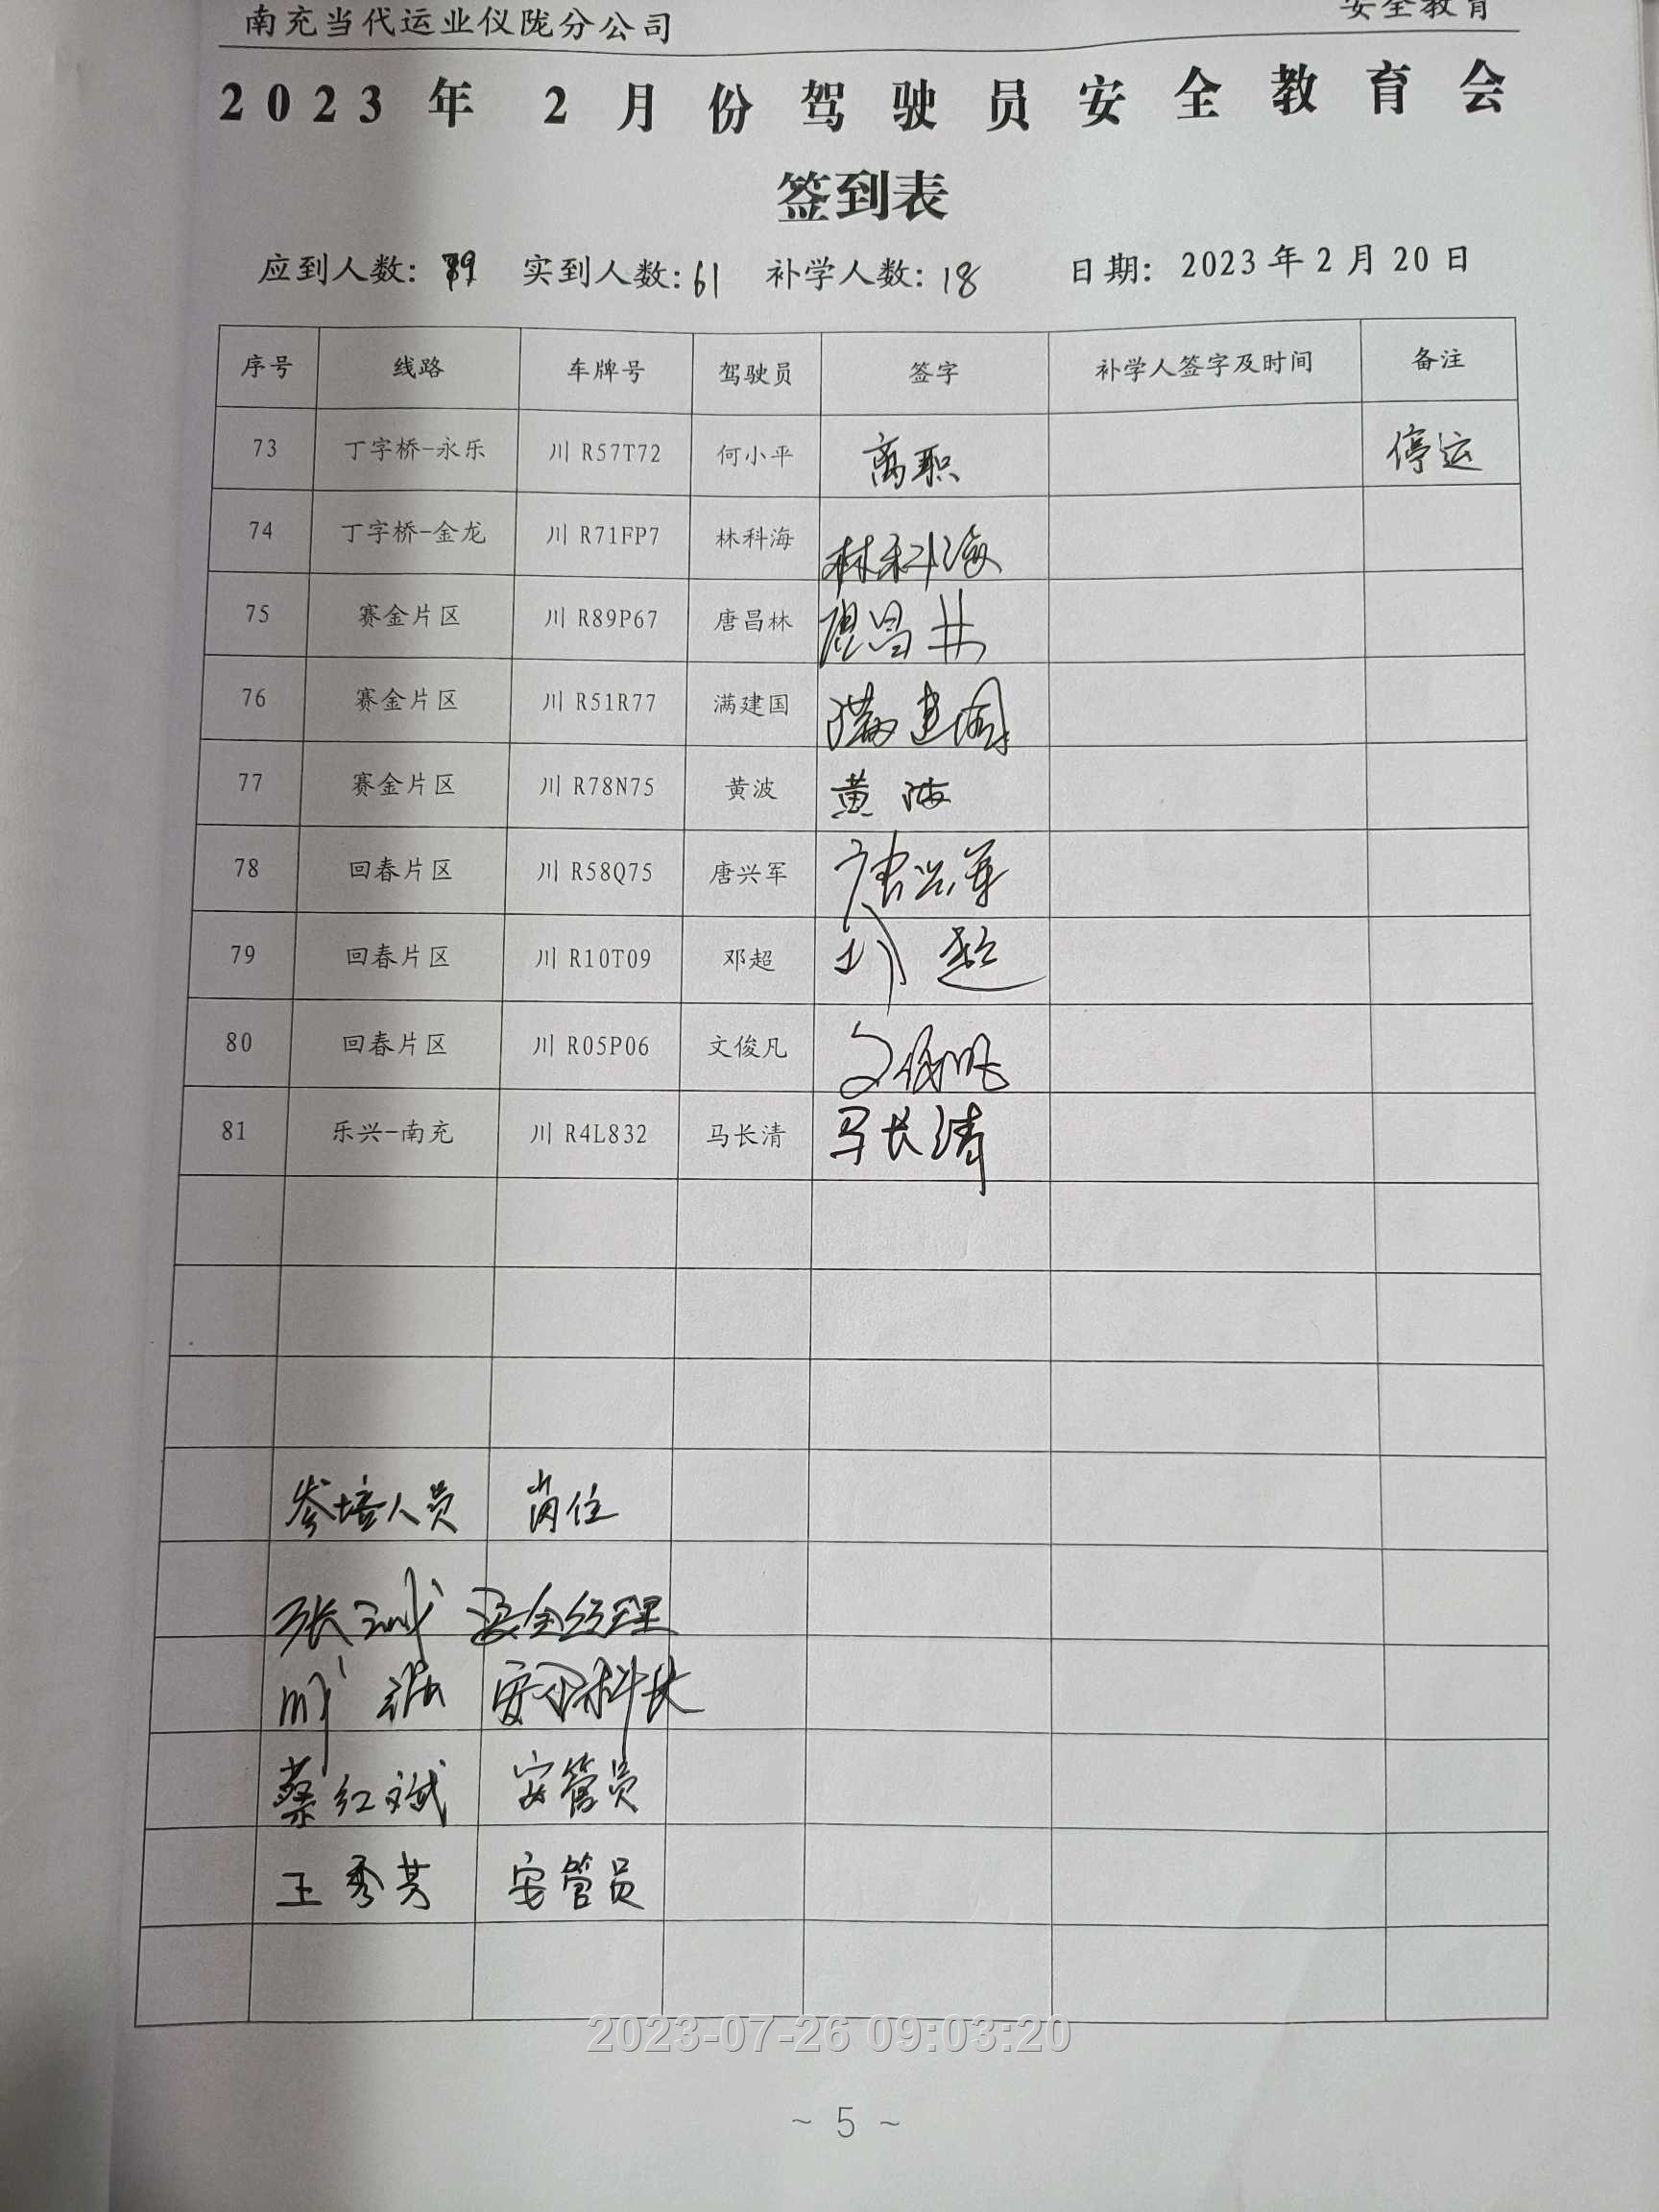 南充当代运业仪陇分公司 安全教育
2023年2月份驾驶员安全教育会
签到表
应到人数: 79 实到人数: 61 补学人数: 18 日期: 2023年2月20日
序号 线路 车牌号 驾驶员 签字 补学人签字及时间 备注
73 丁字桥-永乐 川 R57T72 何小平 离职 停运
74 丁字桥-金龙 川 R71FP7 林科海 林科海
75 赛金片区 川 R89P67 唐昌林 唐昌林
76 赛金片区 川 R51R77 满建国 满建国
77 赛金片区 川 R78N75 黄波 黄波
78 回春片区 川 R58Q75 唐兴军 唐兴军
79 回春片区 川 R10T09 邓超 邓超
80 回春片区 川 R05P06 文俊凡 文俊帆
81 乐兴-南充 川 R4L832 马长清 马长清
参培人员 岗位
张 安全经理
安全科长
蔡红斌 安管员
王秀芳 安管员
2023-07-26 09:03:20
~ 5 ~